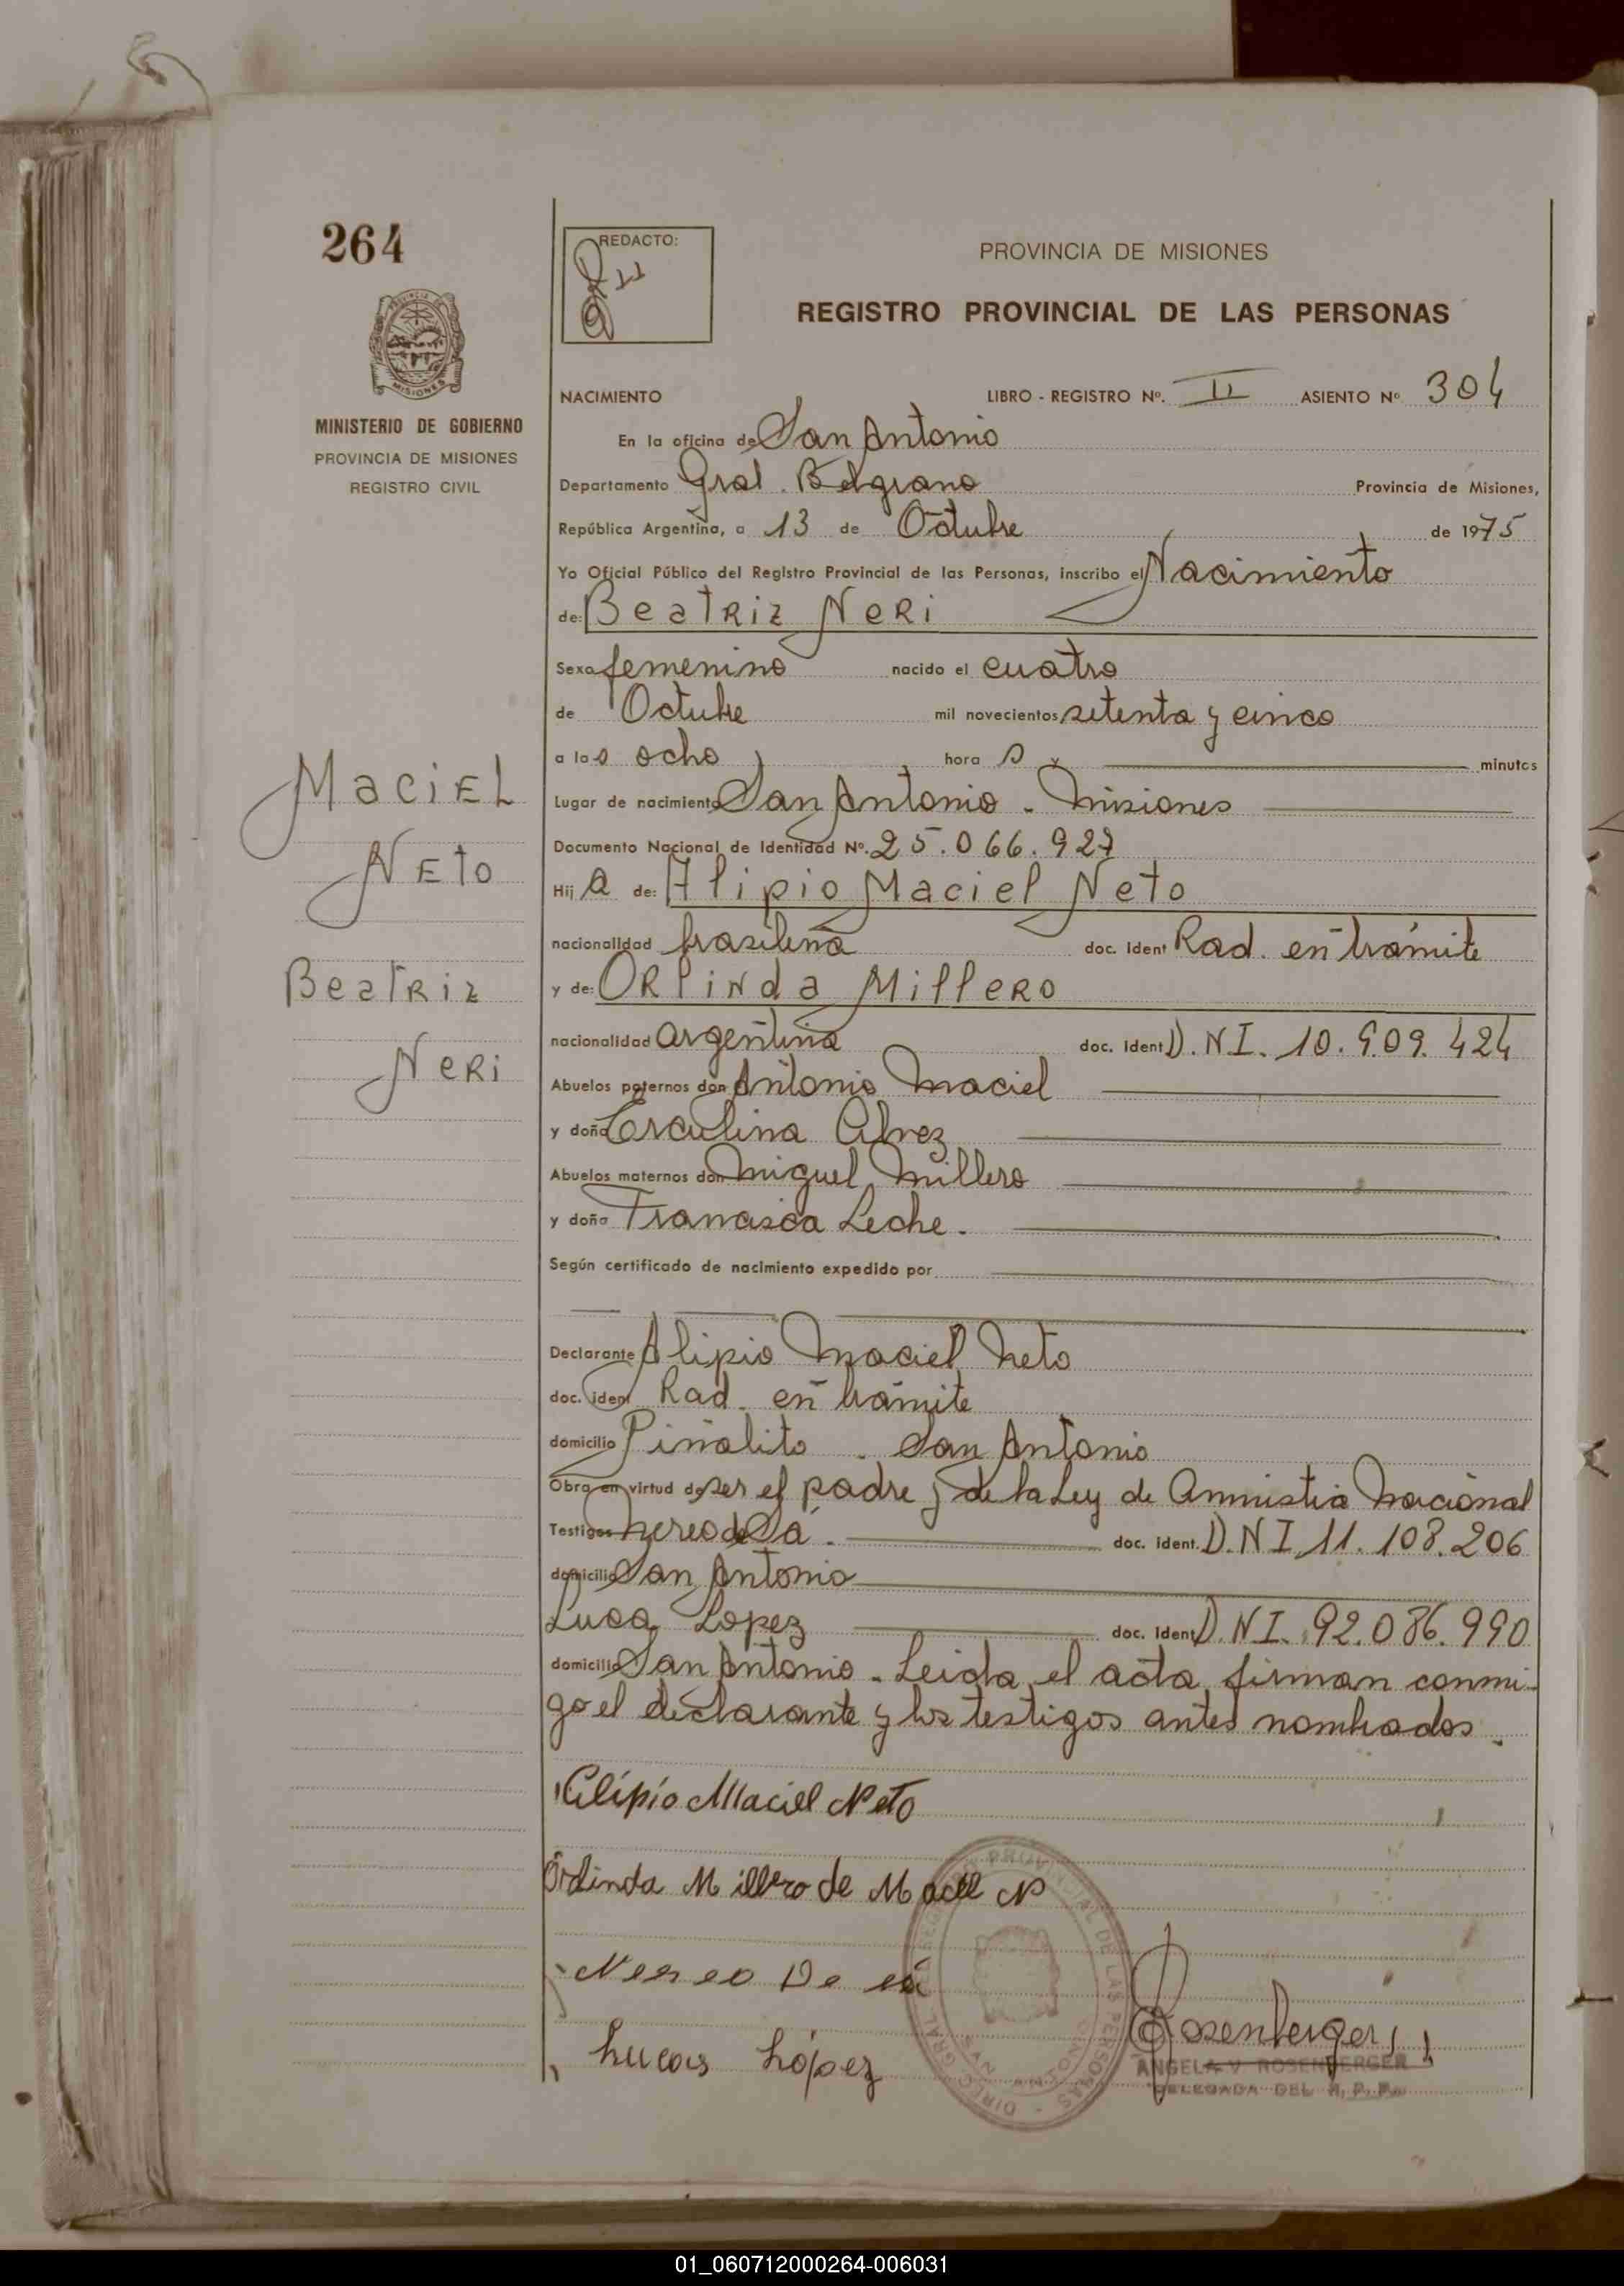 264
REDACTO:
PROVINCIA DE MISIONES
REGISTRO PROVINCIAL DE LAS PERSONAS
MINISTERIO DE GOBIERNO
PROVINCIA DE MISIONES
REGISTRO CIVIL
NACIMIENTO LIBRO - REGISTRO Nº. II ASIENTO Nº 304
En la oficina de San Antonio
Departamento Gral. Belgrano Provincia de Misiones,
República Argentina, a 13 de Octubre de 1975
Yo Oficial Público del Registro Provincial de las Personas, inscribo el Nacimiento
de: Beatriz Neri
Sexo femenino nacido el cuatro
de Octubre mil novecientos setenta y cinco
a las ocho hora s y minutos
Maciel
Lugar de nacimiento San Antonio - Misiones
Documento Nacional de Identidad Nº. 25.066.927
Neto
Hij a de: Alipio Maciel Neto
nacionalidad brasileña doc. ident Rad. en trámite
Beatriz
y de: Orlinda Millero
nacionalidad argentina doc. ident D.N.I. 10.909.424
Neri
Abuelos paternos don Antonio Maciel
y doña Erculina Alvez
Abuelos maternos don Miguel Millero
y doña Francisca Leche.
Según certificado de nacimiento expedido por
Declarante Alipio Maciel Neto
doc. ident Rad. en trámite
domicilio Piñalito - San Antonio
Obra en virtud de ser el padre y de la Ley de Amnistia Nacional
Testigos Nereo de Sá. doc. ident. D.N.I. 11.108.206
domicilio San Antonio
Lucas Lopez doc. ident D.N.I. 92.086.990
domicilio San Antonio - Leida el acta firman conmi-
go el declarante y los testigos antes nombrados.
Alípio Maciel Neto
Orlinda Millero de Maciel N
Nereo De sá
Lucas López
Rosenberger
ANGELA V. ROSENBERGER
DELEGADA DEL R. P. P.
01_060712000264-006031